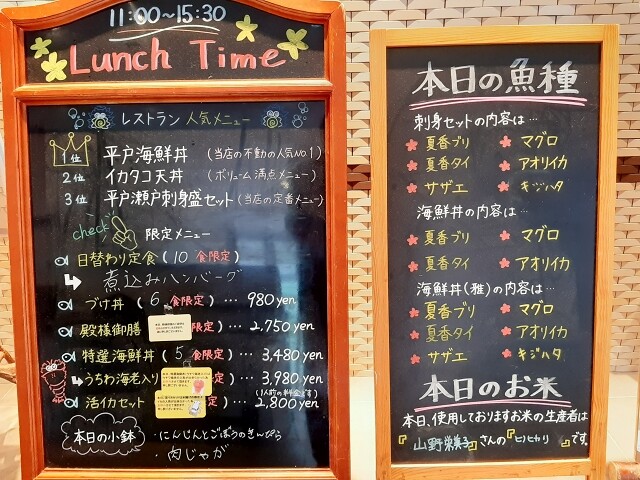 11:00~15:30
Lunch Time
レストラン 人気メニュー
1位 平戸海鮮丼 (当店の不動の人気No.1)
2位 イカタコ天丼 (ボリューム満点メニュー)
3位 平戸瀬戸刺身盛セット(当店の定番メニュー)
check! 限定メニュー
日替わり定食(10食限定)
煮込みハンバーグ
づけ丼 (6食限定)… 980yen
殿様御膳 限定)… 2,750yen
特選海鮮丼(5食限定)… 3,480yen
うちわ海老入り )… 3,980yen
(1人前の料金です)
活イカセット )… 2,800yen
本日の小鉢 ・にんじんとごぼうのきんぴら
・肉じゃが
本日の魚種
刺身セットの内容は…
夏香ブリ マグロ
夏香タイ アオリイカ
サザエ キジハタ
海鮮丼の内容は…
夏香ブリ マグロ
夏香タイ アオリイカ
海鮮丼(雅)の内容は…
夏香ブリ マグロ
夏香タイ アオリイカ
サザエ キジハタ
本日のお米
本日、使用しておりますお米の生産者は
『山野栄美子さんの『ヒノヒカリ』です。